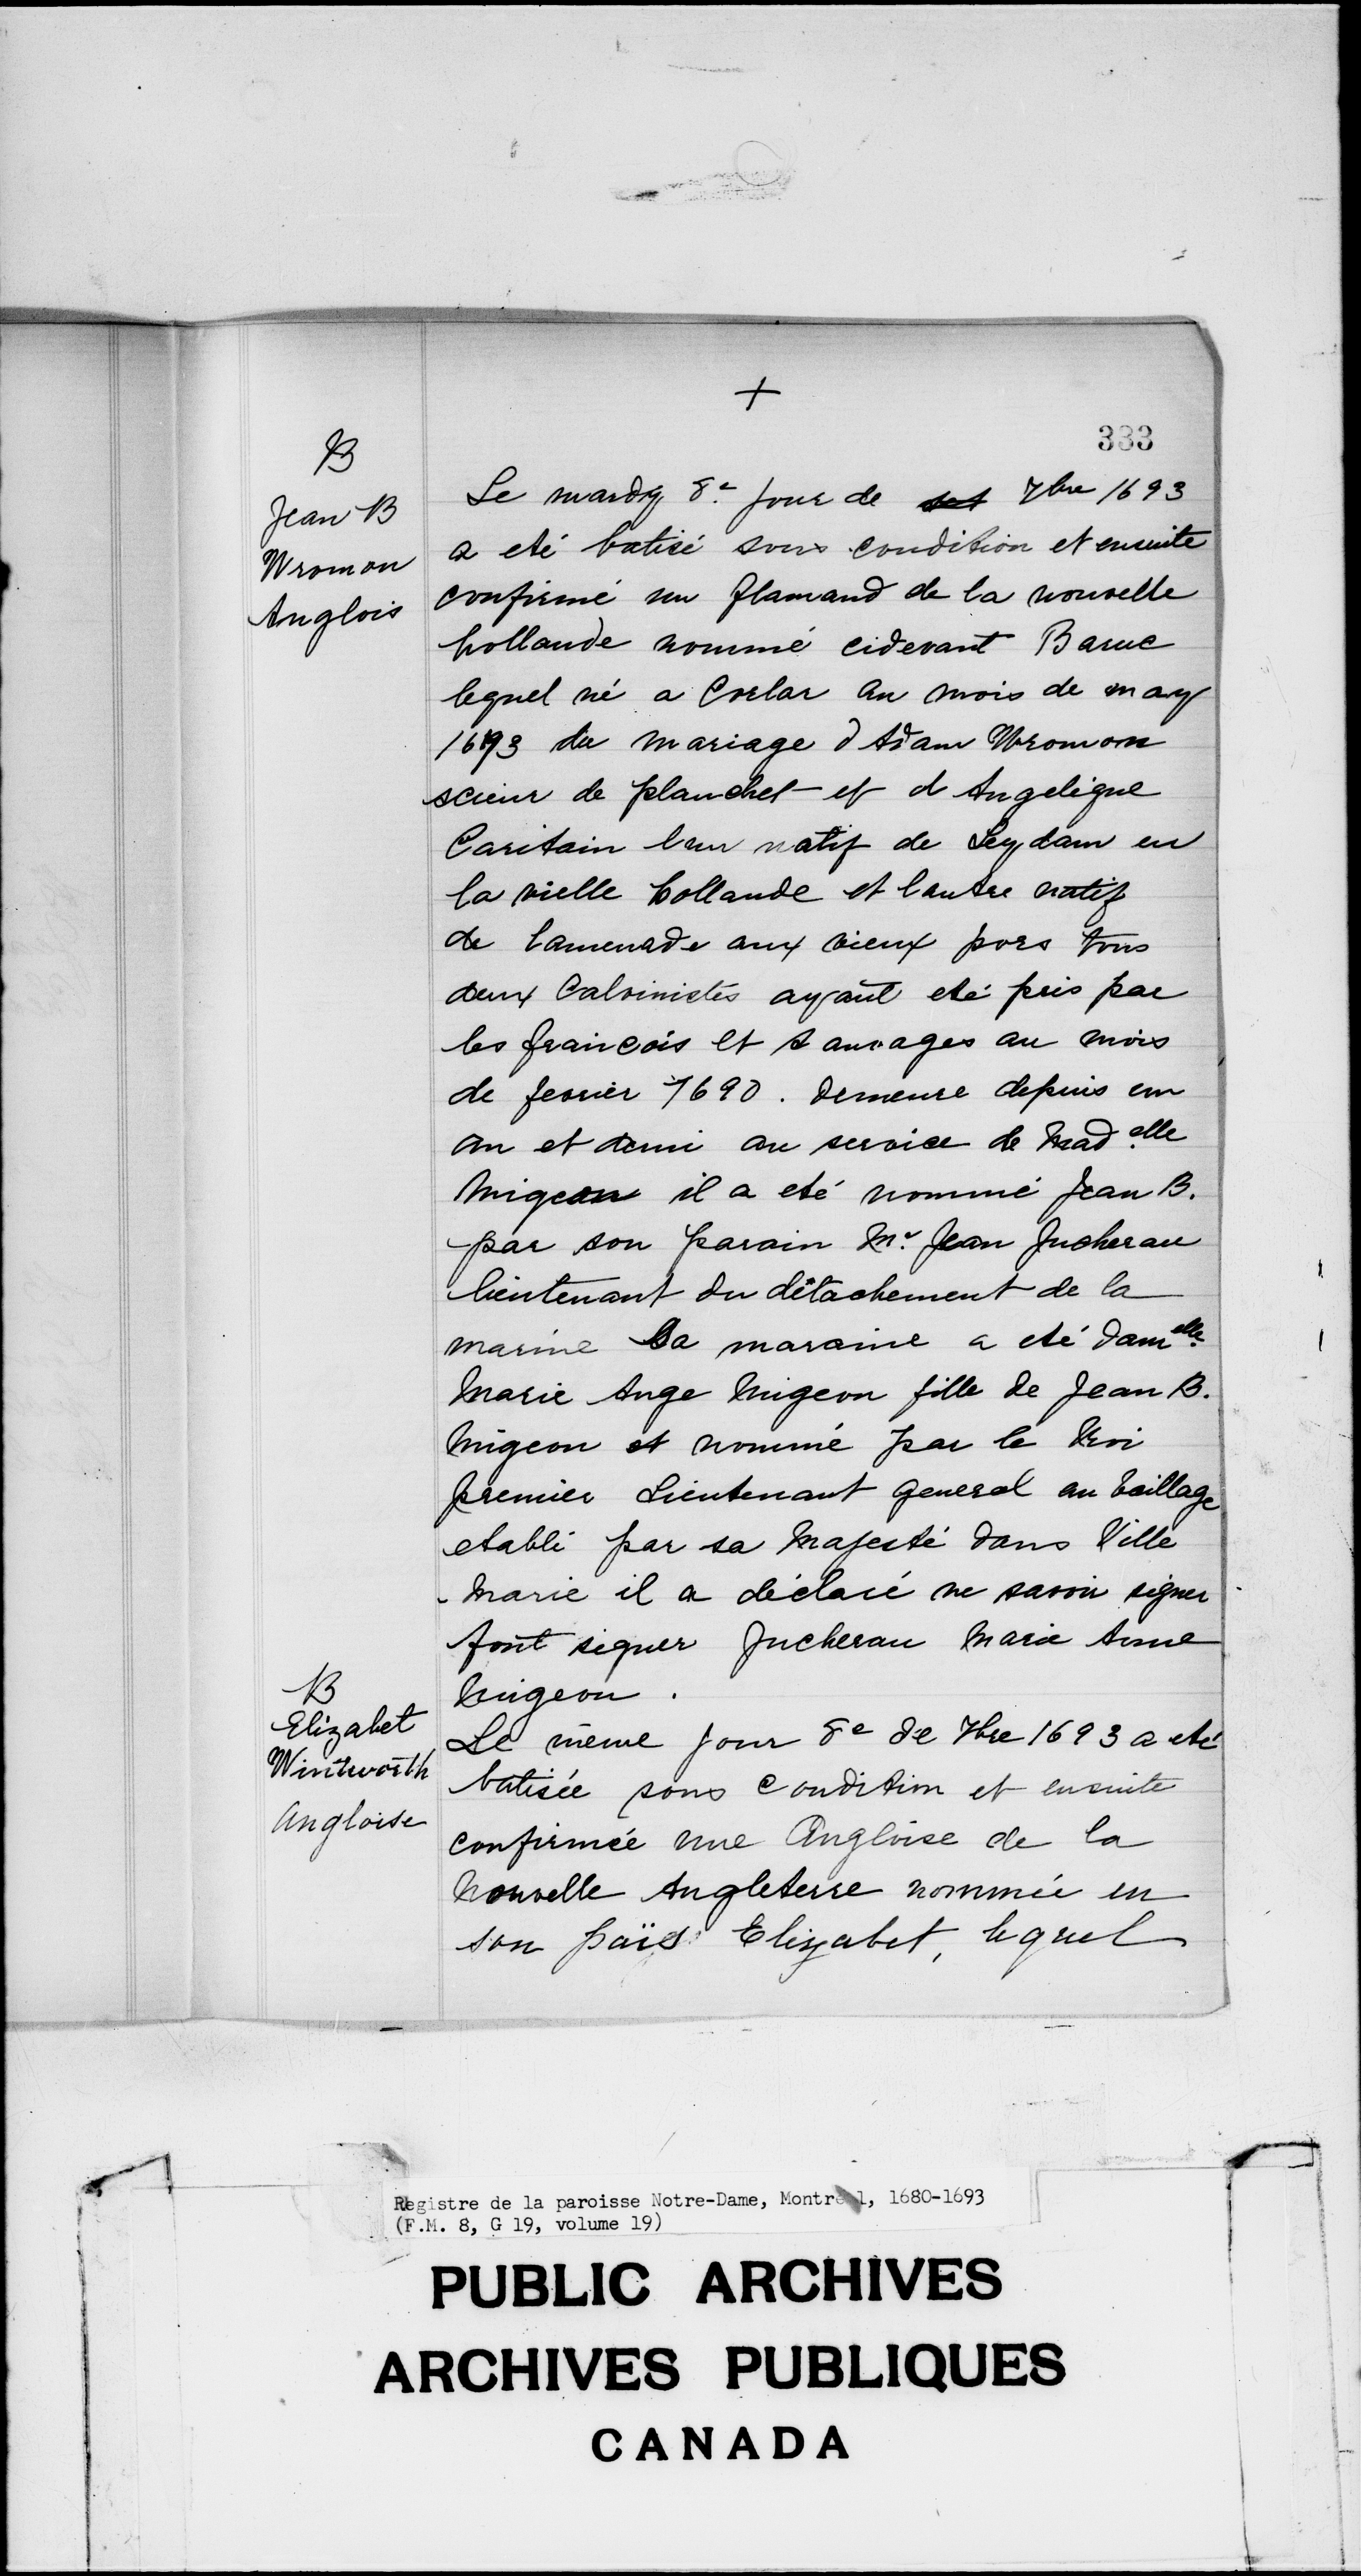 +
333
B
Jean B
Wromon
Anglois
Le mardy 8e jour de set 7bre 1693
a eté batisé sous condition et ensuite
confirmé un flamand de la nouvelle
hollande nommé cidevant Baruc
lequel né a Corlar au mois de may
1693 du mariage d Adam Wromom
scieur de planchet et d Angelique
Caritain l'un natif de Leydam en
la vielle hollande et lautre natif
de lamenade aux vieux pors tous
deux Calvinistes ayant eté pris par
les françois et sauvages au mois
de fevrier 1690. demeure depuis un
an et demi au service de Mad.elle
Migeon il a eté nommé Jean B.
par son parain Mr. Jean Jucherau
lieutenant du détachement de la
marine Sa maraine a eté damelle
Marie Ange Migeon fille de Jean B.
Migeon et nommé par le Roi
premier Lieutenant general au baillage
etabli par sa Majesté dans Ville
Marie il a déclaré ne savoir signer
font signer Jucherau Marie Anne
Migeon.
B
Elizabet
Wintworth
Angloise
Le même jour 8e de 7bre 1693 a eté
batisée sous condition et ensuite
confirmée une Angloise de la
Nouvelle Angleterre nommée en
son païs Elizabet, lequel
Registre de la paroisse Notre-Dame, Montréal, 1680-1693
(F.M. 8, G 19, volume 19)
PUBLIC ARCHIVES
ARCHIVES PUBLIQUES
CANADA